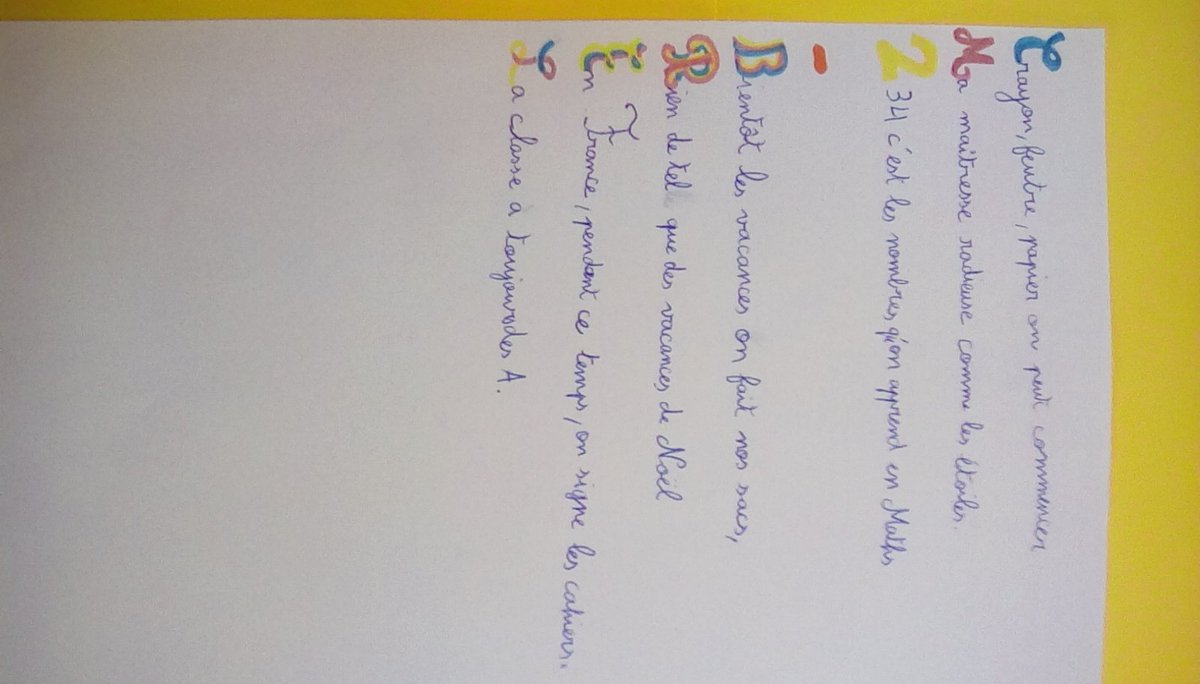 Crayon, feutre, papier on peut commencer
Ma maîtresse radieuse comme les étoiles.
234 c'est les nombres qu'on apprend en Maths
-
Bientôt les vacances on fait nos sacs,
Rien de tel que des vacances de Noël
Ën France, pendant ce temps, on signe les cahiers.
La classe à toujours des A.